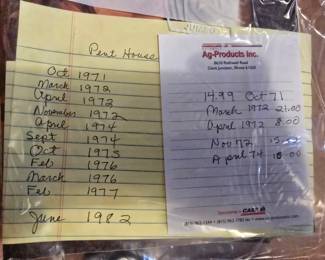 Pent House
Oct 1971
March 1972
april 1972
November 1972
april 1974
Sept 1974
Oct 1975
Feb 1976
March 1976
Feb 1977
June 1982
Ag-Products Inc.
1499 Oct 71
March 1972 21.00
April 1972 8.00
Nov 72
April 74